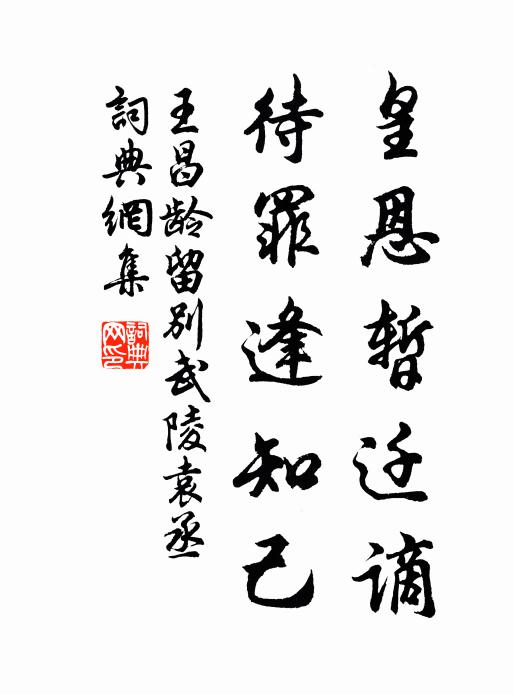 皇恩暫迁謫
待罪逢知己
王昌龄留別武陵袁丞
詞典網集
詞典網印